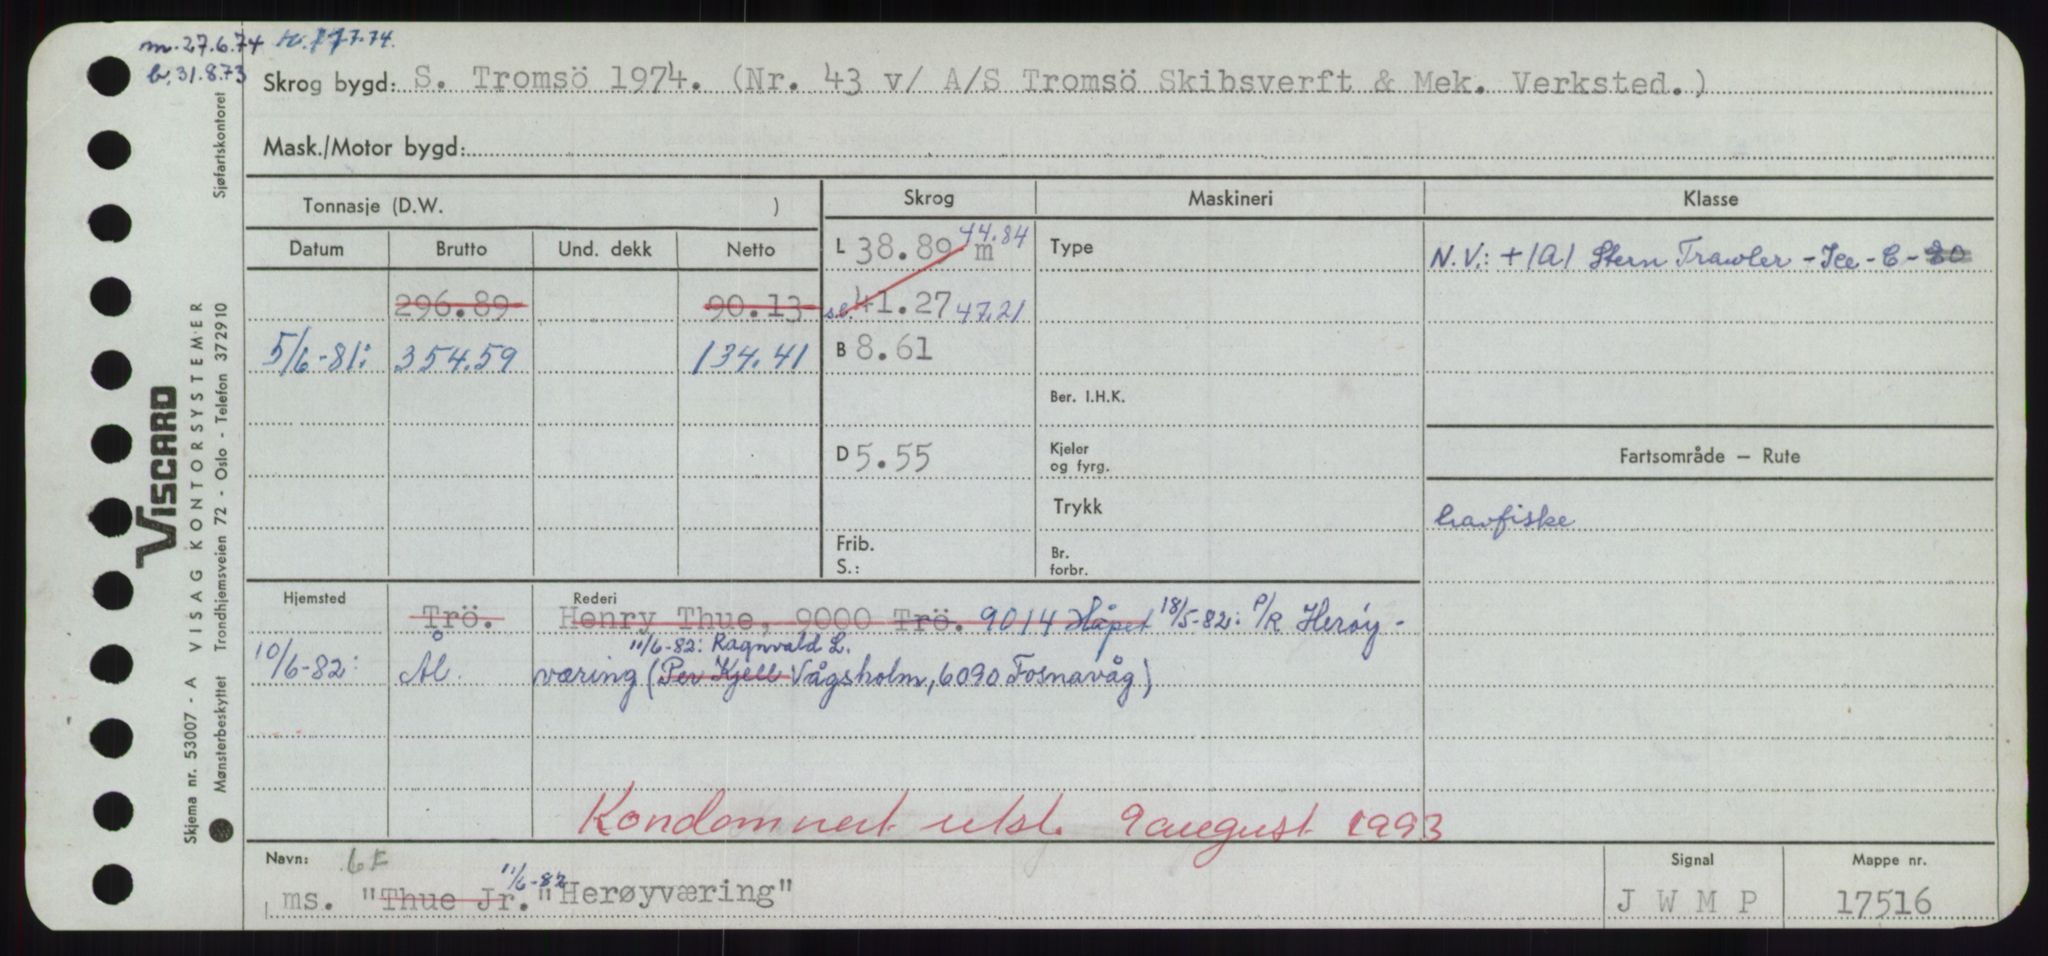 m. 27.6.74
b. 31.8.73
Skrog bygd: S. Tromsö 1974. (Nr. 43 v/ A/S Tromsö Skibsverft & Mek. Verksted.)
Mask./Motor bygd:
Tonnasje (D.W. )
Skrog
Maskineri
Klasse
Datum
Brutto
Und. dekk
Netto
L 38.89 m 44.84
Type
N.V.: +1A1 Stern Trawler - Ice - C -
296.89
90.13
41.27 47.21
5/6-81:
354.59
134.41
B 8.61
Ber. I.H.K.
D 5.55
Kjeler
og fyrg.
Fartsområde – Rute
Trykk
havfiske
Frib.
S.:
Br.
forbr.
Hjemsted
Rederi
Trö.
Henry Thue, 9000 Trö. 9014 Håpet 18/5-82: P/R Herøy-
11/6-82: Ragnvald L.
10/6-82:
Ål.
væring (Per Kjell Vågsholm, 6090 Fosnavåg)
Kondemnert utsl. 9 august 1993
Navn: 6F
11/6-82
ms. "Thue Jr." "Herøyværing"
Signal
J W M P
Mappe nr.
17516
Sjøfartskontoret
VISCARD
VISAG KONTORSYSTEMER
Trondhjemsveien 72 - Oslo - Telefon 372910
Skjema nr. 53007 - A
Mønsterbeskyttet